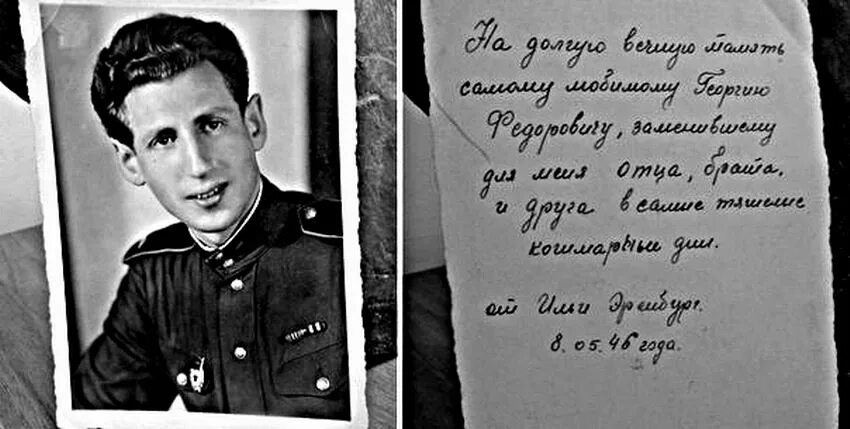 На долгую вечную память
самому любимому Георгию
Федоровичу, заменившему
для меня отца, брата,
и друга в самие тяшелие
кошмарные дни.
от Ильи Эренбург.
8.05.46 года.